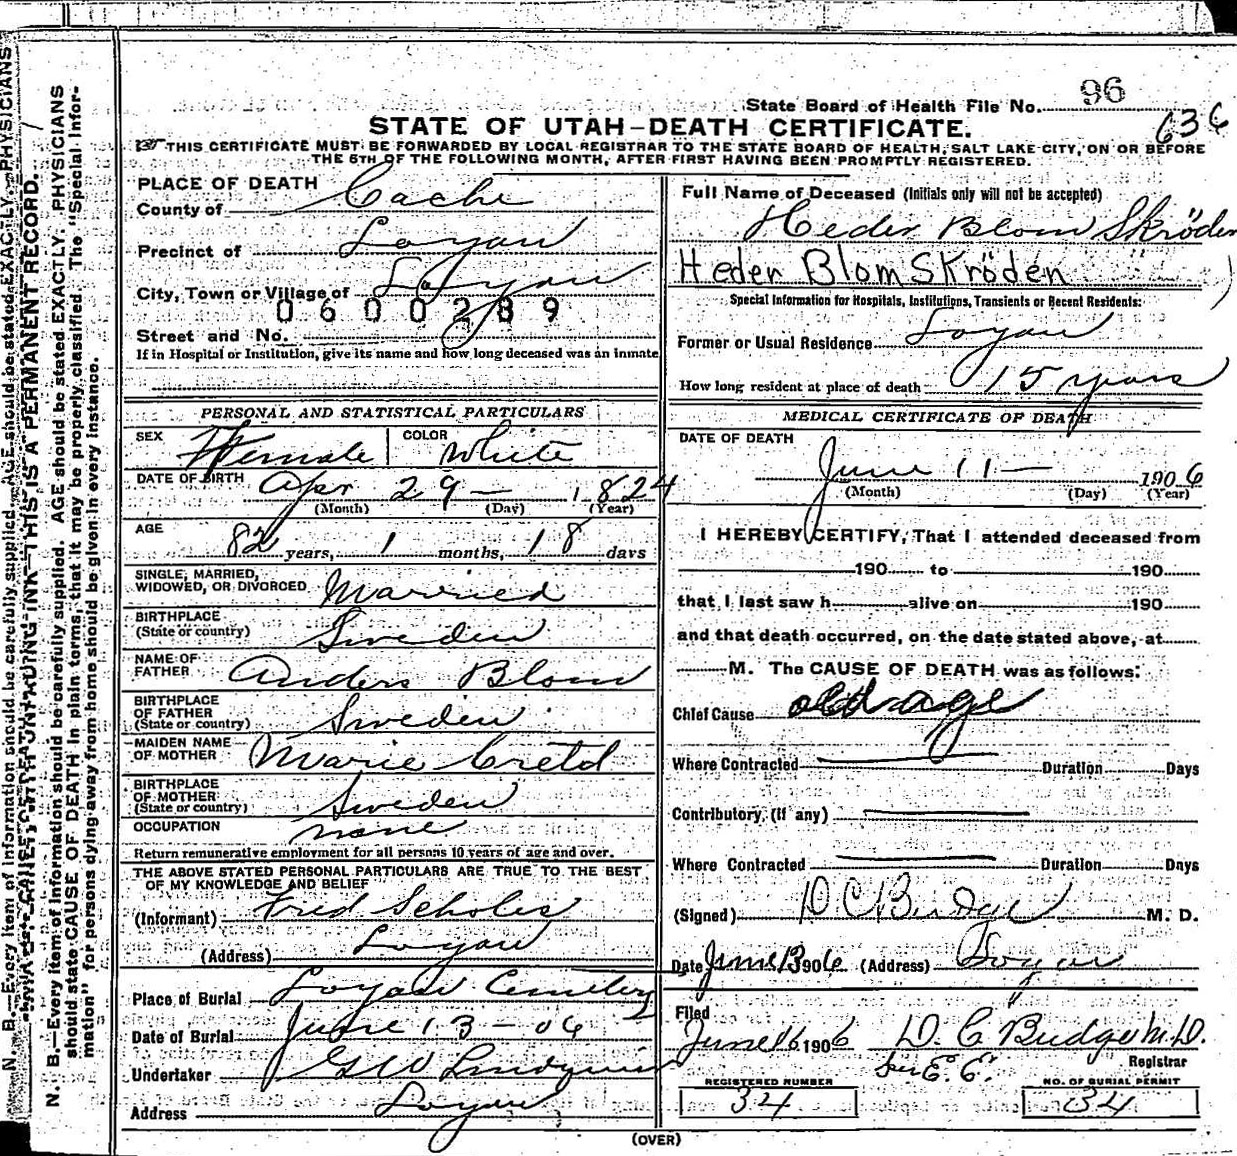 State Board of Health File No. 96
636
STATE OF UTAH—DEATH CERTIFICATE.
THIS CERTIFICATE MUST BE FORWARDED BY LOCAL REGISTRAR TO THE STATE BOARD OF HEALTH, SALT LAKE CITY, ON OR BEFORE
THE 5TH OF THE FOLLOWING MONTH, AFTER FIRST HAVING BEEN PROMPTLY REGISTERED.
PLACE OF DEATH
County of Cache
Precinct of Logan
City, Town or Village of Logan
0600289
Street and No.
If in Hospital or Institution, give its name and how long deceased was an inmate
PERSONAL AND STATISTICAL PARTICULARS
SEX Female COLOR White
DATE OF BIRTH Apr 29 — 1824
(Month) (Day) (Year)
AGE 82 years, 1 months, 18 days
SINGLE, MARRIED,
WIDOWED, OR DIVORCED Married
BIRTHPLACE
(State or country) Sweden
NAME OF
FATHER Anders Blom
BIRTHPLACE
OF FATHER
(State or country) Sweden
MAIDEN NAME
OF MOTHER Marie
BIRTHPLACE
OF MOTHER
(State or country) Sweden
OCCUPATION none
Return remunerative employment for all persons 10 years of age and over.
THE ABOVE STATED PERSONAL PARTICULARS ARE TRUE TO THE BEST
OF MY KNOWLEDGE AND BELIEF
(Informant) Fred Scholes
(Address) Logan
Place of Burial Logan Cemetery
Date of Burial June 13 - 06
Undertaker G W Lindquist
Address Logan
Full Name of Deceased (Initials only will not be accepted)
Heder Blom Skröden
Heder Blom Skröden
Special Information for Hospitals, Institutions, Transients or Recent Residents:
Former or Usual Residence Logan
How long resident at place of death 15 years
MEDICAL CERTIFICATE OF DEATH
DATE OF DEATH
June 11 — 1906
(Month) (Day) (Year)
I HEREBY CERTIFY, That I attended deceased from
190 to 190
that I last saw h alive on 190
and that death occurred, on the date stated above, at
M. The CAUSE OF DEATH was as follows:
Chief Cause old age
Where Contracted Duration Days
Contributory, (if any)
Where Contracted Duration Days
(Signed) D C Budge M. D.
Date June 13 1906 (Address) Logan
Filed
June 16 1906 D. C Budge M.D.
Per E. E. Registrar
REGISTERED NUMBER 34
NO. OF BURIAL PERMIT 34
(OVER)
N. B.—Every item of information should be carefully supplied. AGE should be stated EXACTLY. PHYSICIANS
THIS IS A PERMANENT RECORD.
N. B.—Every item of information should be carefully supplied. AGE should be stated EXACTLY. PHYSICIANS
should state CAUSE OF DEATH in plain terms, that it may be properly classified. The "Special Infor-
mation" for persons dying away from home should be given in every instance.